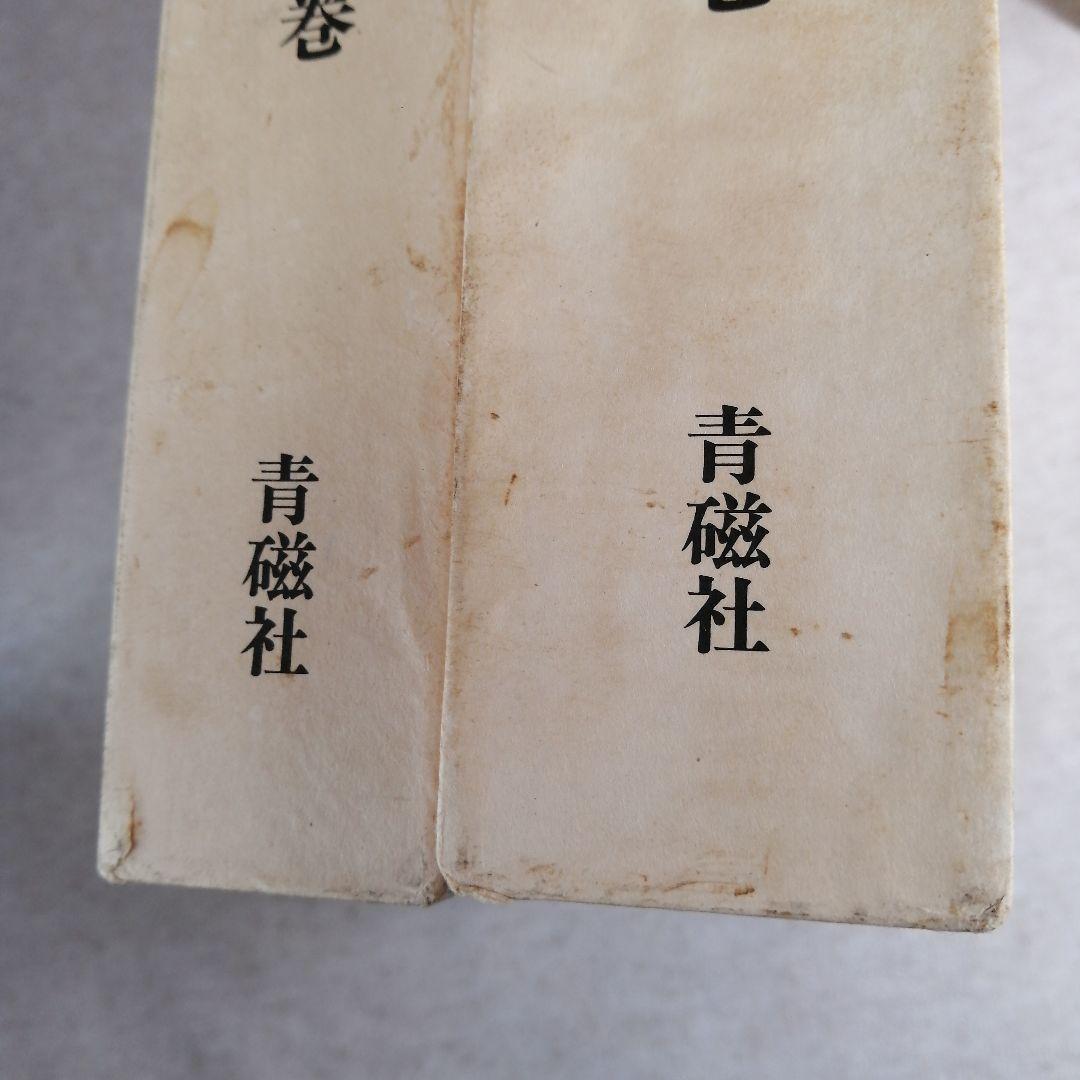 青磁社
巻
青磁社